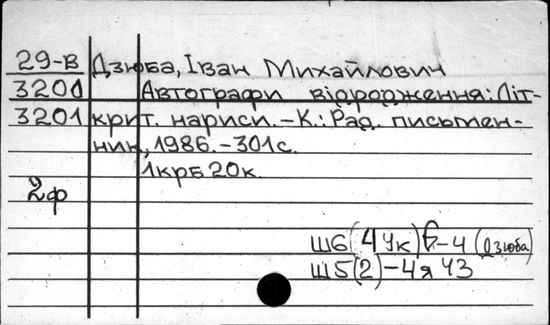 29-В Дзюба, Іван Михайлович
3200 Автографи відродження: Літ-
3201 крит. нариси. - К.: Рад. письмен-
ник, 1986. - 301 с.
1крб 20к.
2ф
Ш6(4Ук) -4 (Дзюба)
Ш5(2)-4я43